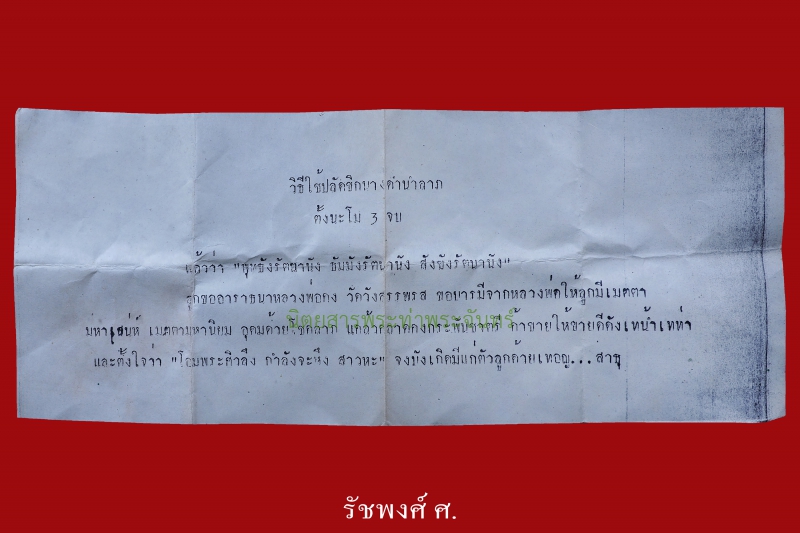 วิธีใช้ปลัดขิกนางดำนำลาภ
ตั้งนะโม 3 จบ
แล้วว่า "พุทธังรัตนานัง ธัมมังรัตนานัง สังฆังรัตนานัง"
ลูกขออาราธนาหลวงพ่อคง วัดวังสรรพรส ขอบารมีจากหลวงพ่อให้ลูกมีเมตตา
มหาเสน่ห์ เมตตามหานิยม อุดมด้วยโชคลาภ แคล้วคลาดคงกระพันชาตรี ค้าขายให้ขายดีดังเทน้ำเทท่า
และตั้งใจว่า "โอมพระศิวลึง กำลังจะนึง สาวหะ" จงบังเกิดมีแก่ตัวลูกด้วยเทอญ...สาธุ
นิตยสารพระท่าพระจันทร์
รัชพงศ์ ศ.